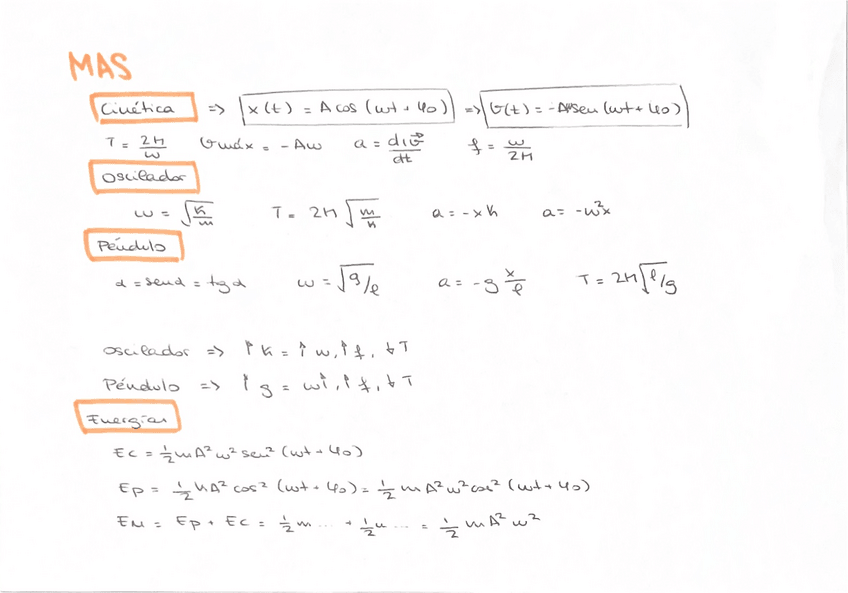 MAS
Cinética => x(t) = A cos (ωt + φ0) => v(t) = -Aω sen (ωt + φ0)
T = 2π/ω vmáx = -Aω a = d|v⃗|/dt f = ω/2π
Oscilador
ω = √(k/m) T = 2π √(m/k) a = -xk a = -ω²x
Péndulo
α = senα = tgα ω = √g/l a = -g x/l T = 2π√l/g
Oscilador => ↑k = ↑ω, ↑f, ↓T
Péndulo => ↑g = ω↑, ↑f, ↓T
Energías
Ec = 1/2 mA²ω² sen² (ωt + φ0)
Ep = 1/2 kA² cos² (ωt + φ0) = 1/2 mA²ω² cos² (ωt + φ0)
EM = Ep + Ec = 1/2 m ... + 1/2 k ... = 1/2 mA²ω²